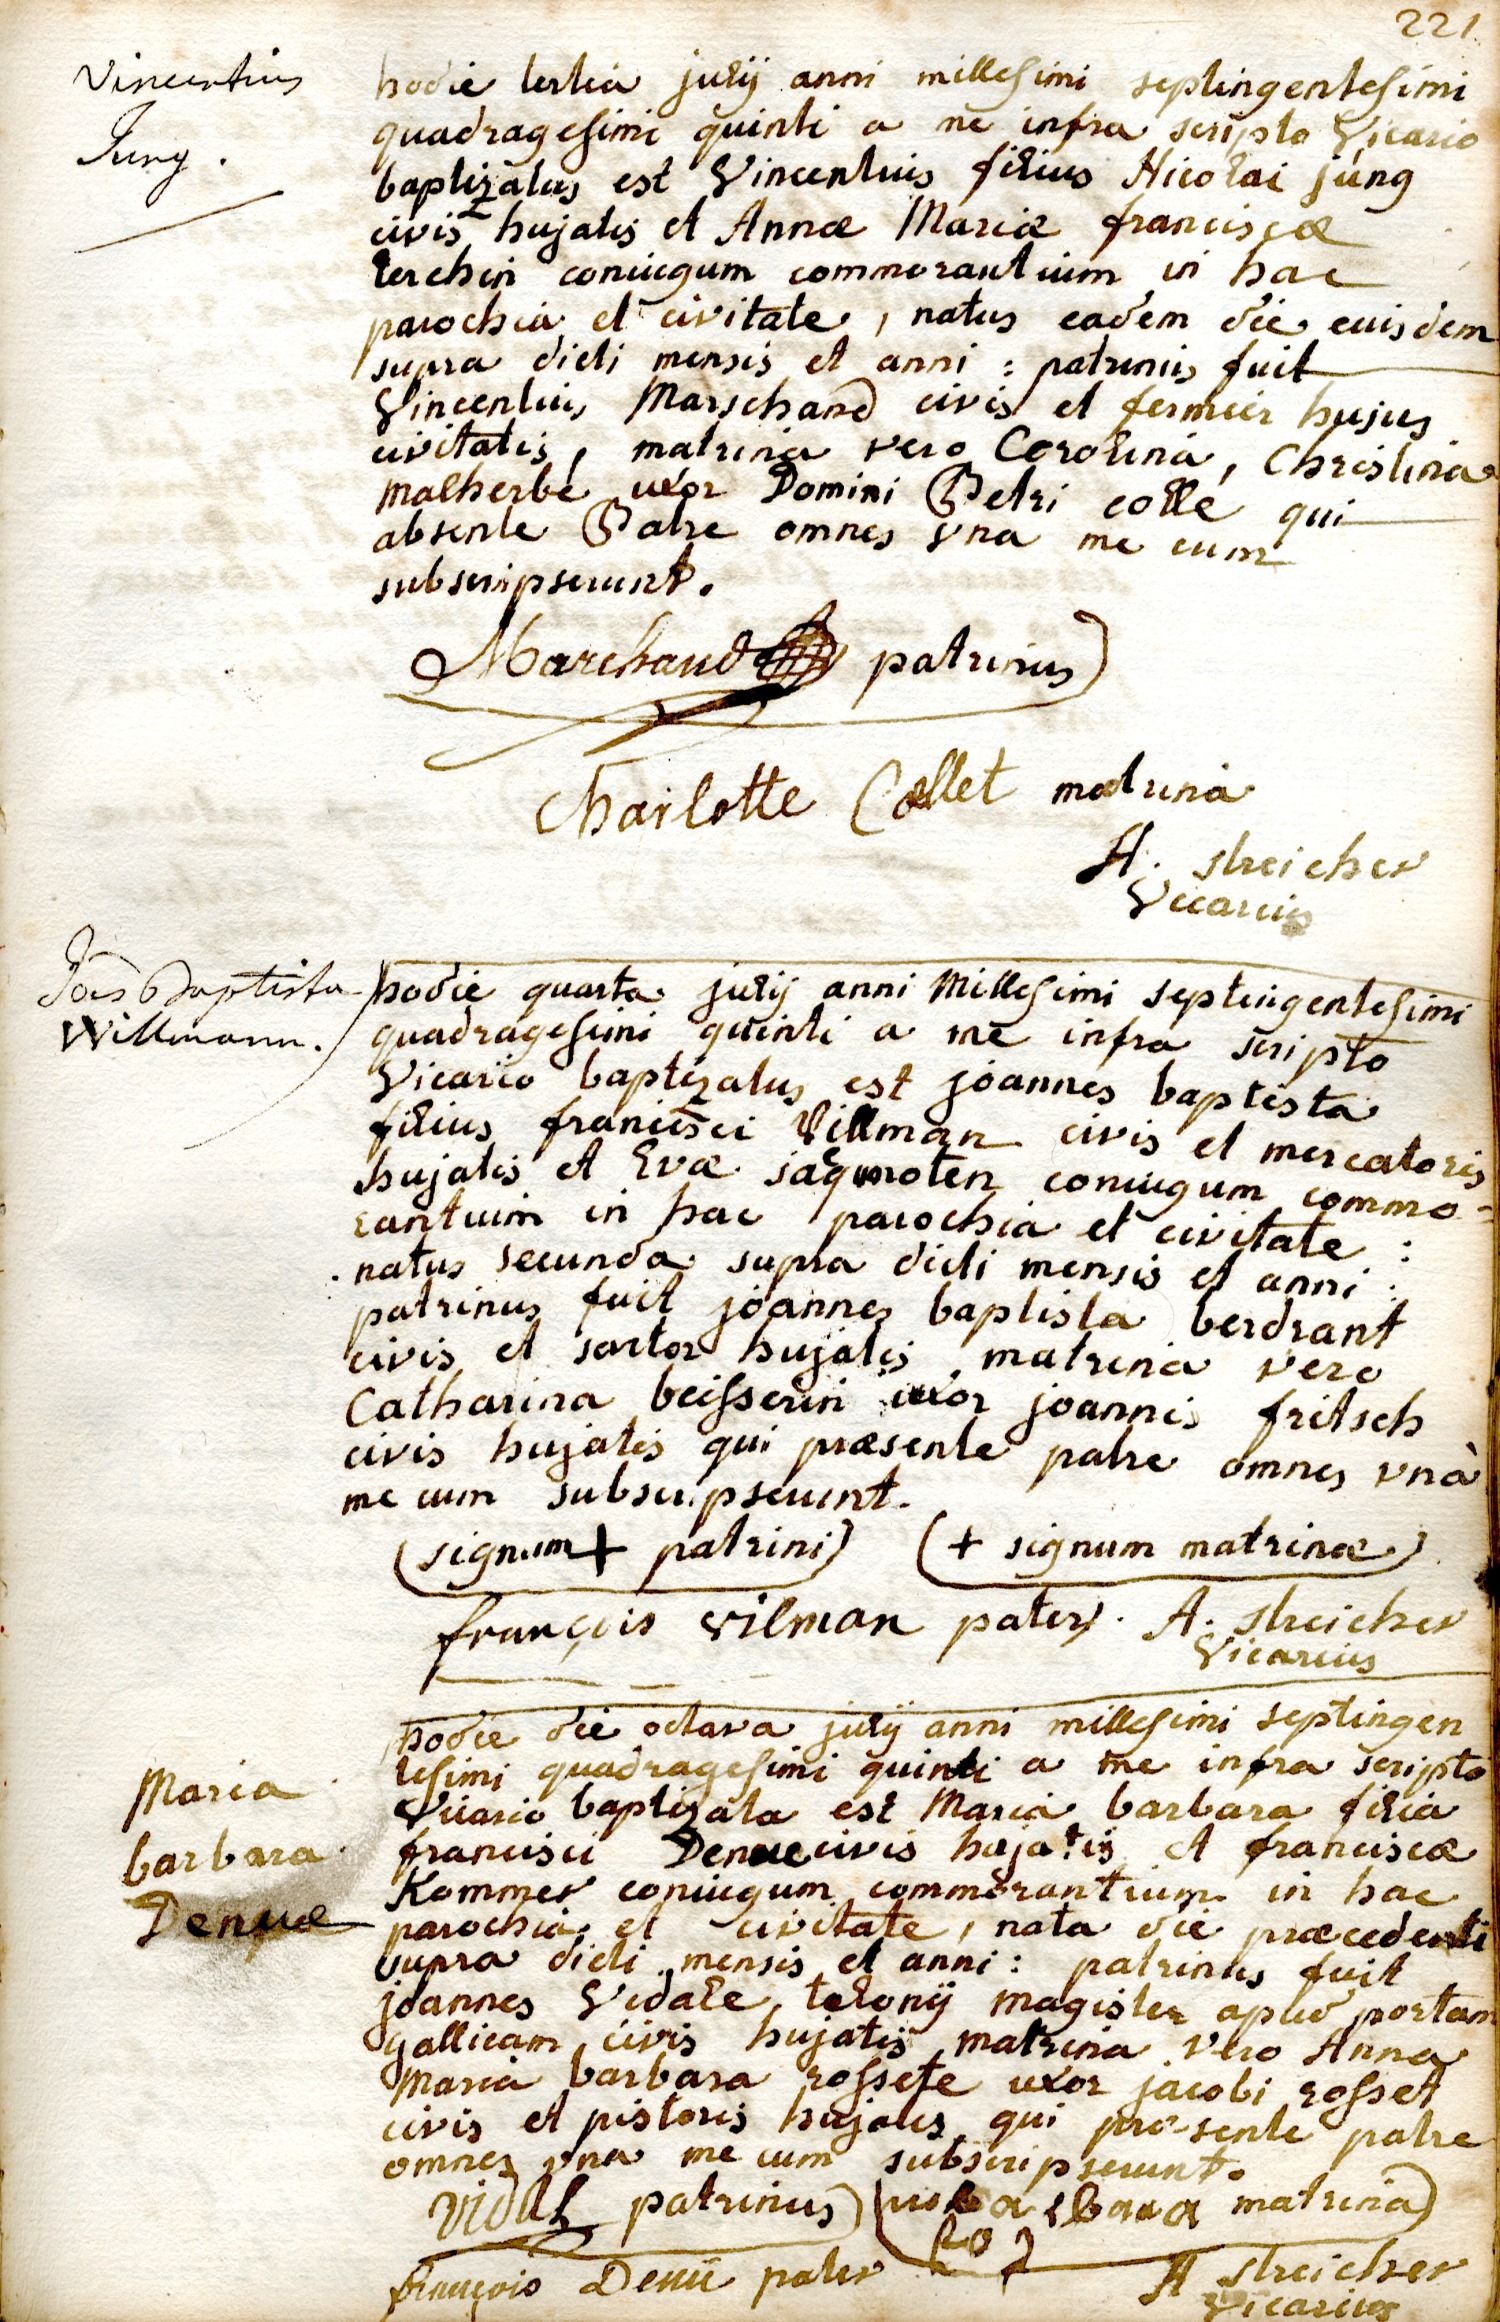 221
Vincentius
Jung.
hodie tertia julij anni millesimi septingentesimi
quadragesimi quinti a me infra scripto Vicario
baptizatus est Vincentius filius Nicolai jung
civis hujatis et Annæ Mariæ franciscæ
lerchin coniugum commorantium in hac
parochia et civitate, natus eadem die euisdem
supra dicti mensis et anni : patrinus fuit
Vincentius Marschand civis et fermier hujus
civitatis, matrina vero Carolina, Christina
malherbe uxor Domini Petri colle qui
absente Patre omnes vna me cum
subscripserunt.
Marchand patrinus
Charlotte Collet matrina
A. streicher
Vicarius
Jões Baptista
Willmann.
hodie quarta julij anni Millesimi septingentesimi
quadragesimi quinti a me infra scripto
Vicario baptizatus est joannes baptista
filius francisci Villman civis et mercatoris
hujatis et Evæ jaqmoten coniugum commo-
rantium in hac parochia et civitate :
natus secunda supra dicti mensis et anni :
patrinus fuit joannes baptista berdrant
civis et sartor hujatis, matrina vero
Catharina beisserin uxor joannis fritsch
civis hujatis qui præsente patre omnes vnà
me cum subscripserunt.
(signum + patrini) (+ signum matrinæ)
françois vilman pater. A. streicher
Vicarius
Maria
barbara
Denuæ
hodie die octava julij anni millesimi septingen
tesimi quadragesimi quinti a me infra scripto
Vicario baptizata est Maria barbara filia
francisci Denue civis hujatis et franciscæ
Kommer coniugum commorantium in hac
parochia et civitate, nata die præcedenti
supra dicti mensis et anni : patrinus fuit
joannes Vidale, telonij magister apud portam
gallicam civis hujatis matrina vero Anna
Maria barbara rossete uxor jacobi rosset
civis et pistoris hujatis qui præsente patre
omnes vna me cum subscripserunt.
Vidal patrinus) matrina)
françois Denü pater A streicher
Vicarius